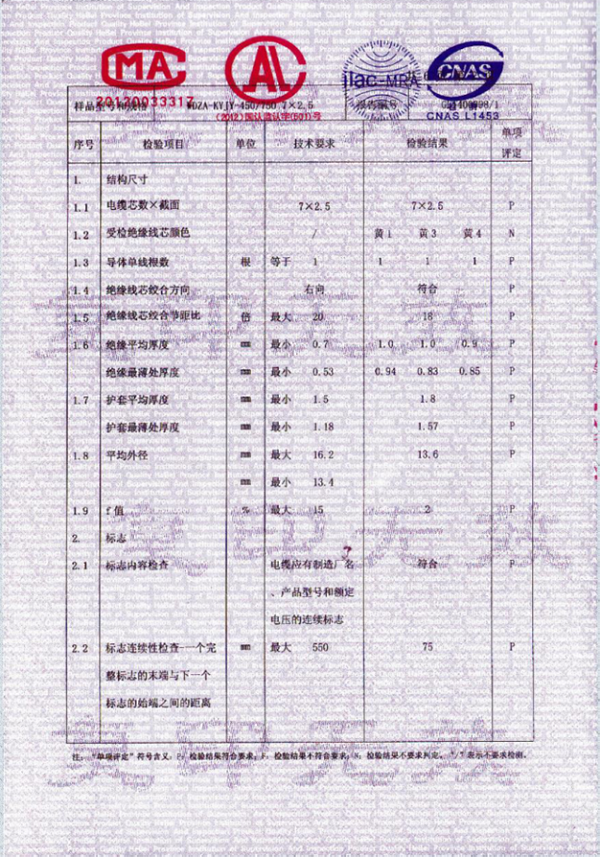 MA
AL
ilac-MRA
CNAS
20120033317
(2012)国认监认字(501)号
CNAS L1453
样品型号和规格 WDZA-KYJY-450/750 7×2.5 报告编号
序号 检验项目 单位 技术要求 检验结果 单项
评定
1. 结构尺寸
1.1 电缆芯数×截面 7×2.5 7×2.5 P
1.2 受检绝缘线芯颜色 / 黄1 黄3 黄4 N
1.3 导体单线根数 根 等于 1 1 1 1 P
1.4 绝缘线芯绞合方向 右向 符合 P
1.5 绝缘线芯绞合节距比 倍 最大 20 18 P
1.6 绝缘平均厚度 mm 最小 0.7 1.0 1.0 0.9 P
绝缘最薄处厚度 mm 最小 0.53 0.94 0.83 0.85 P
1.7 护套平均厚度 mm 最小 1.5 1.8 P
护套最薄处厚度 mm 最小 1.18 1.57 P
1.8 平均外径 mm 最大 16.2 13.6 P
mm 最小 13.4
1.9 f值 % 最大 15 2 P
2. 标志
2.1 标志内容检查 电缆应有制造厂名 符合 P
、产品型号和额定
电压的连续标志
2.2 标志连续性检查-一个完 mm 最大 550 75 P
整标志的末端与下一个
标志的始端之间的距离
注：“单项评定”符号含义：P，检验结果符合要求；F，检验结果不符合要求；N，检验结果不要求判定。“/”表示不要求检测。
复印无效
复印无效